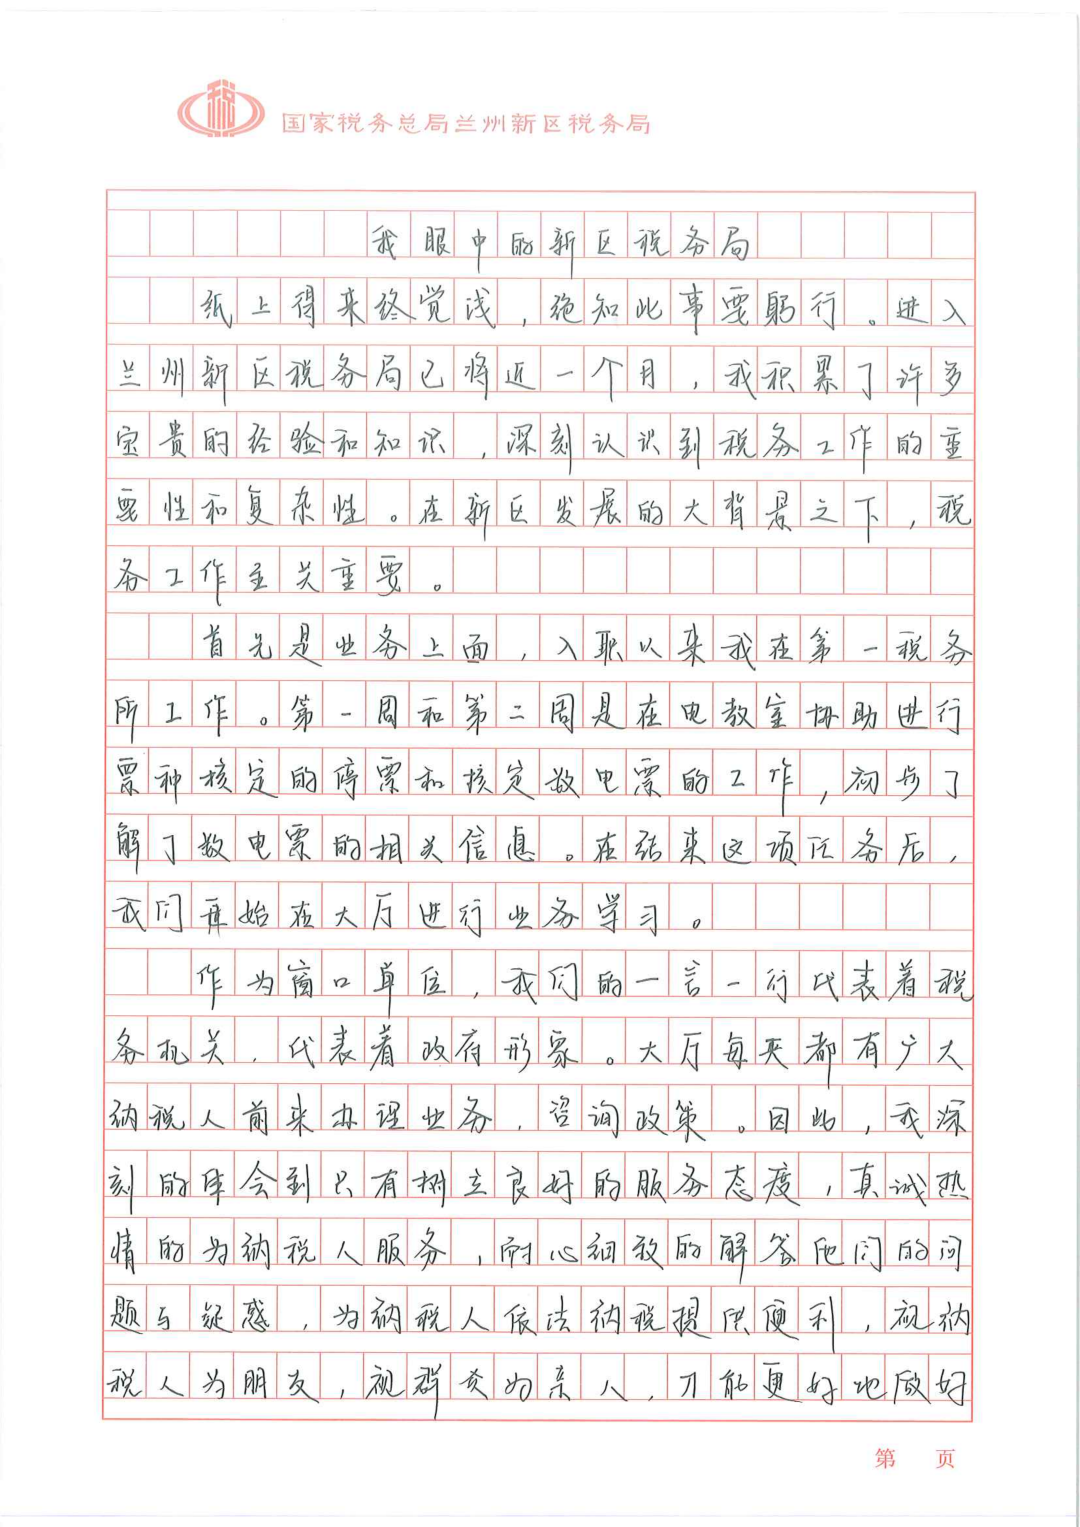 税
国家税务总局兰州新区税务局
我眼中的新区税务局
纸上得来终觉浅，绝知此事要躬行。进入
兰州新区税务局已将近一个月，我积累了许多
宝贵的经验和知识，深刻认识到税务工作的重
要性和复杂性。在新区发展的大背景之下，税
务工作至关重要。
首先是业务上面，入职以来我在第一税务
所工作。第一周和第二周是在电教室协助进行
票种核定的停票和核定数电票的工作，初步了
解了数电票的相关信息。在结束这项任务后，
我们开始在大厅进行业务学习。
作为窗口单位，我们的一言一行代表着税
务机关，代表着政府形象。大厅每天都有广大
纳税人前来办理业务，咨询政策。因此，我深
刻的体会到只有树立良好的服务态度，真诚热
情的为纳税人服务，耐心细致的解答他们的问
题与疑惑，为纳税人依法纳税提供便利，视纳
税人为朋友，视群众为亲人，才能更好地做好
第 页